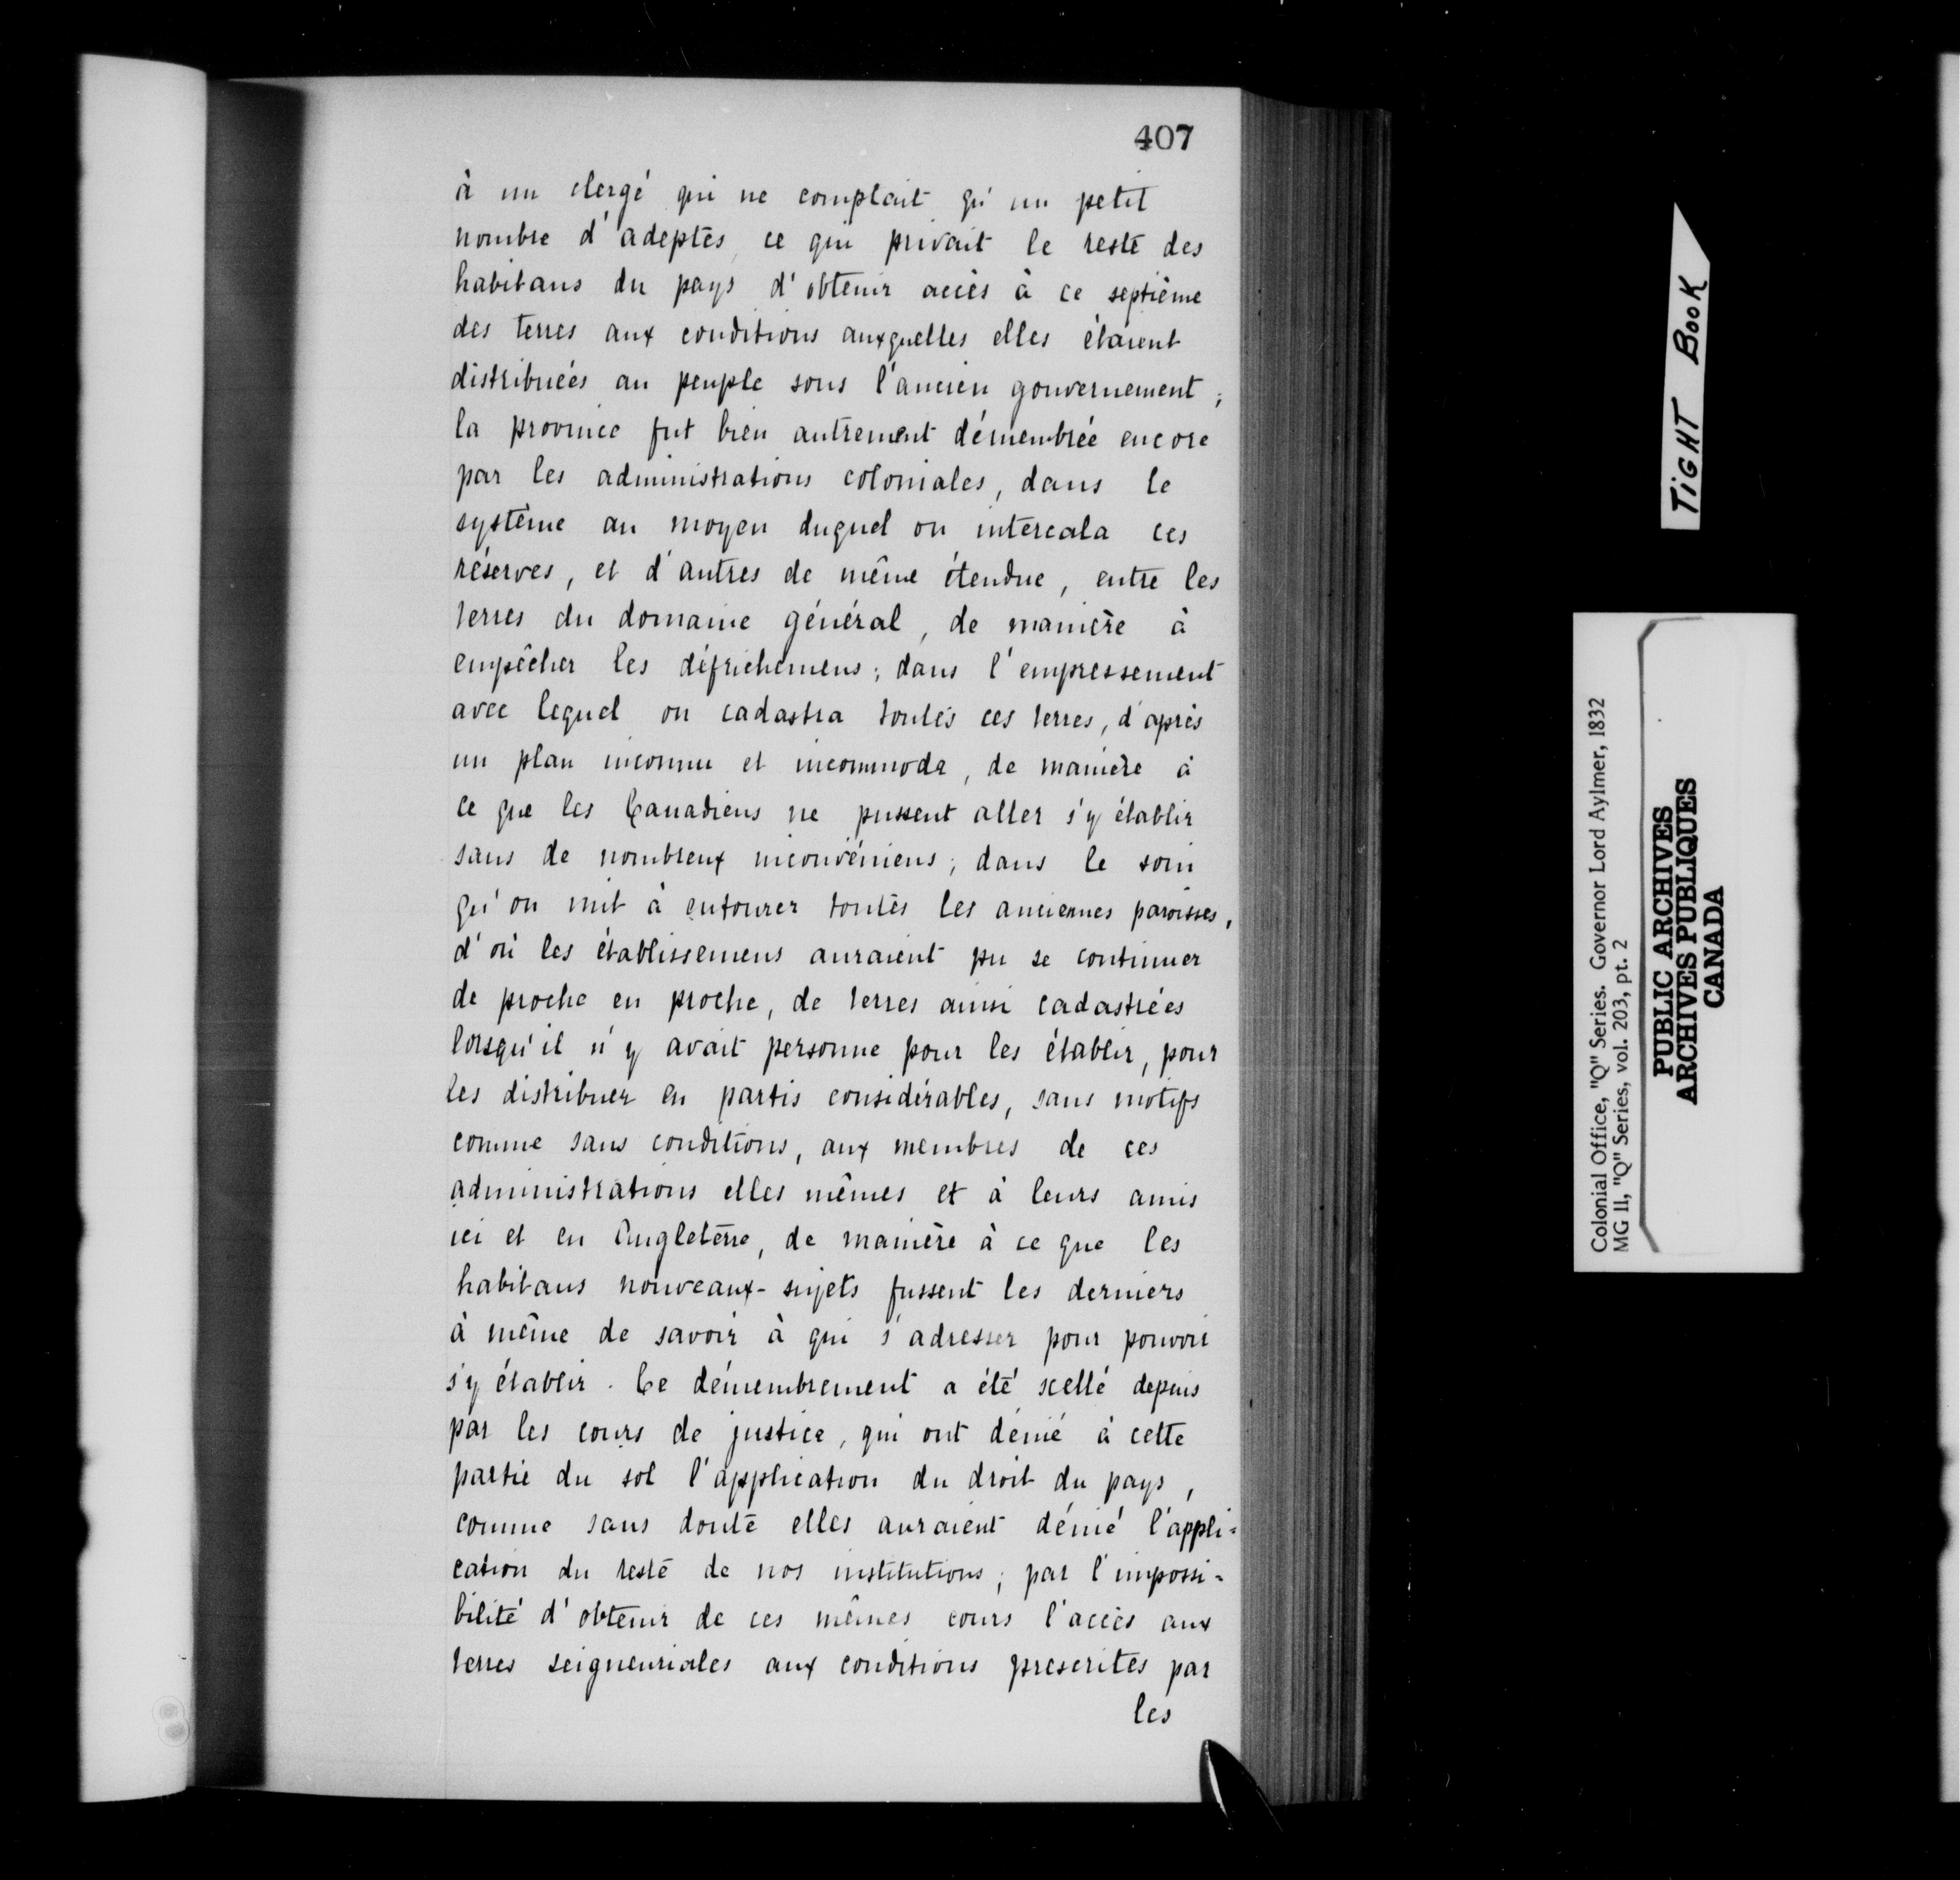 407
à un clergé qui ne comptait qu'un petit
nombre d'adeptes, ce qui privait le reste des
habitans du pays d'obtenir accès à ce septième
des terres aux conditions auxquelles elles étaient
distribuées au peuple sous l'ancien gouvernement;
la province fut bien autrement démembrée encore
par les administrations coloniales, dans le
système au moyen duquel on intercala ces
réserves, et d'autres de même étendue, entre les
terres du domaine général, de manière à
empêcher les défrichemens; dans l'empressement
avec lequel on cadastra toutes ces terres, d'après
un plan inconnu et incommode, de manière à
ce que les Canadiens ne pussent aller s'y établir
sans de nombreux inconvéniens; dans le soin
qu'on mit à entourer toutes les anciennes paroisses,
d'où les établissemens auraient pu se continuer
de proche en proche, de terres ainsi cadastrées
lorsqu'il n'y avait personne pour les établir, pour
les distribuer en partis considérables, sans motifs
comme sans conditions, aux membres de ces
administrations elles mêmes et à leurs amis
ici et en Angleterre, de manière à ce que les
habitans nouveaux-sujets fussent les derniers
à même de savoir à qui s'adresser pour pouvoir
s'y établir. Ce démembrement a été scellé depuis
par les cours de justice, qui ont dénié à cette
partie du sol l'application du droit du pays,
comme sans doute elles auraient dénié l'appli=
cation du reste de nos institutions; par l'impossi=
bilité d'obtenir de ces mêmes cours l'accès aux
terres seigneuriales aux conditions prescrites par
les
TIGHT BOOK
Colonial Office, "Q" Series. Governor Lord Aylmer, 1832
MG 11, "Q" Series, vol. 203, pt. 2
PUBLIC ARCHIVES
ARCHIVES PUBLIQUES
CANADA